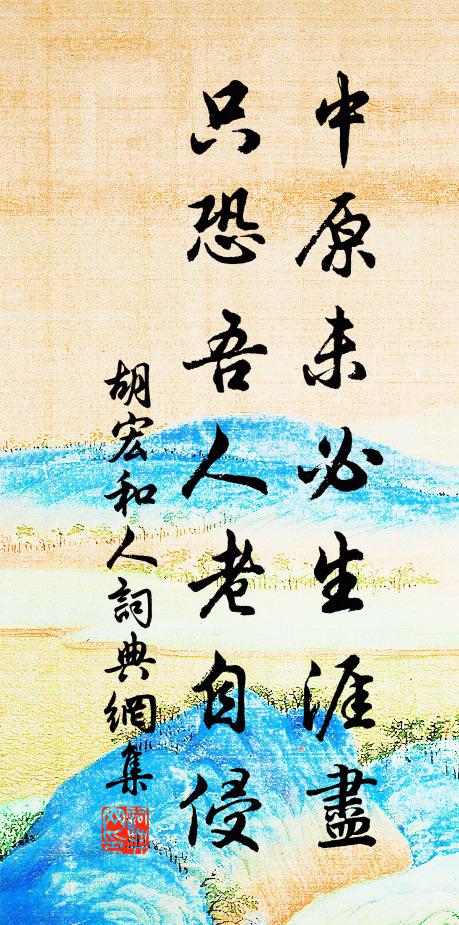 中原未必生涯盡
只恐吾人老自侵
胡宏和人詞典網集